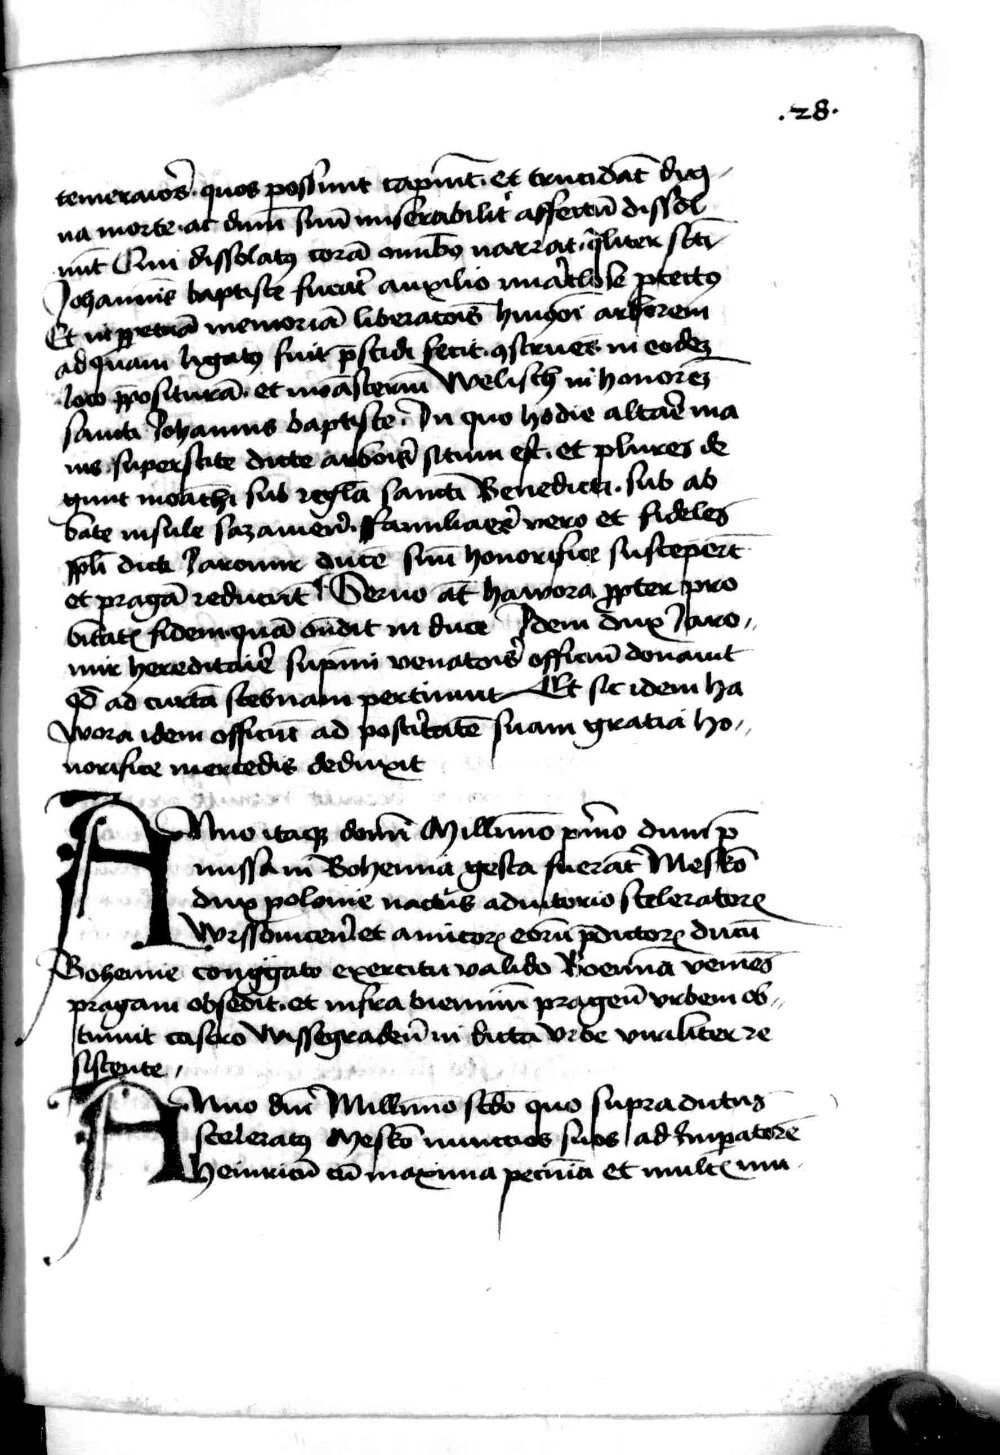 .28.
temerarios. quos possunt capiūt. et trucidāt dig-
na morte. ac ducē suū miserabilit' affectū dissol
uūt Qui dissolutꝰ corā omībꝫ narrat. qͣliter scti
Johannis baptiste fuerat auxilio ptectꝰ
Et in ppetuā memoriā liberatiois hmōi arborem
ad quam ligatꝰ fuit p̄scidi fecit. ꝯstruēs in eodeꝫ
loco p̄posituram. et moāsteriū Welisch in honorēꝫ
sancti Johannis baptiste. In quo hodie altare ma
ius. superstite dicte arboris situm est. et plures de
gunt moachi sub regla sancti Benedicti. sub ab
bate insule sazauien̄. Familiares vero et fideles
ppli dicti Jaromir ducē suū honorifice susceperūt
et pragā reducūt Seruo āt hawora ppter pro
bitatē fidem quā ōndit in duce Idem dux Jaro-
mir hereditarie supmi venatoris officiū donauit
qd ad curtā stebnam pertinuit Et sic idem ha
wora idem officiū ad posteritatē suam gratia ho-
norifice mercedis deduxit
Anno itaqꝫ domī Millimo p̄mo dum p̄
missa in Bohemia gesta fuerāt Mesko
dux polonie nactus adiutorio sceleratorꝫ
Wrssouicen̄. et amicorꝫ eorū p̄dictorꝫ ducū
Bohemie conggato exercitu valido Boemia veniēs
pragam obsedit. et infra bienniū pragen̄ vrbem ob-
tinuit castro Wissegraden̄ in dicta vrbe viriliter re
sistente.
Anno dn̄i Millimo scdo quo supradictus
sceleratꝰ Mesko nuncios suos ad Impatorē
heinricū cū maxima pecunia et multꝭ mu